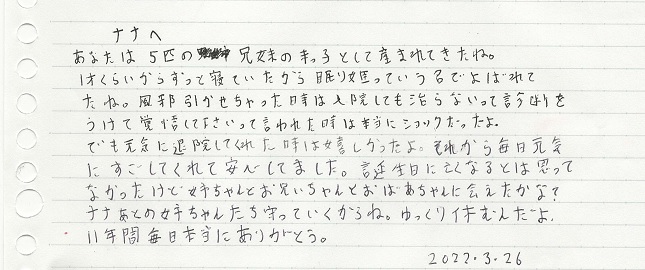 ナナへ
あなたは5匹の兄妹の末っ子として産まれてきたね。
1才くらいからずっと寝ていたから眠り姫っていう名でよばれて
たね。風邪引かせちゃった時は入院しても治らないって診断を
うけて覚悟して下さいって言われた時は本当にショックだったよ。
でも元気に退院してくれた時は嬉しかったよ。それから毎日元気
にすごしてくれて安心してました。誕生日に亡くなるとは思って
なかったけど姉ちゃんとお兄いちゃんとおばあちゃんに会えたかな?
ナナあとの姉ちゃんたち守っていくからね。ゆっくり休むんだよ。
11年間毎日本当にありがとう。
2022.3.26